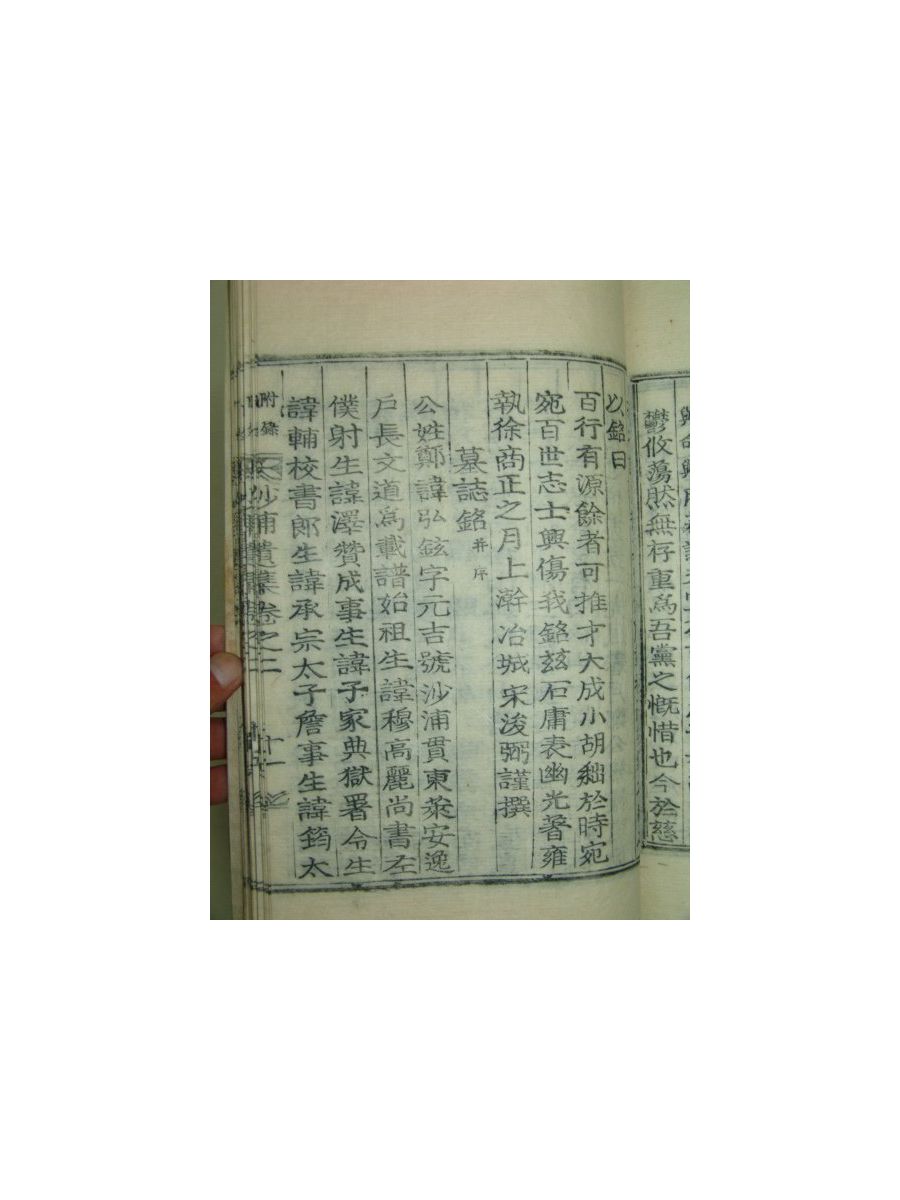 鬱攸蕩然無存重爲吾黨之慨惜也今於慈
以銘曰
百行有源餘者可推才大成小胡絀於時宛
宛百世志士興傷我銘玆石庸表幽光著雍
執徐商正之月上澣冶城宋浚弼謹撰
墓誌銘 幷序
公姓鄭諱弘鉉字元吉號沙浦貫東萊安逸
戶長文道爲載譜始祖生諱穆高麗尚書左
僕射生諱澤贊成事生諱子家典獄署令生
諱輔校書郎生諱承宗太子詹事生諱筠太
附錄 沙浦遺集卷之二 十一